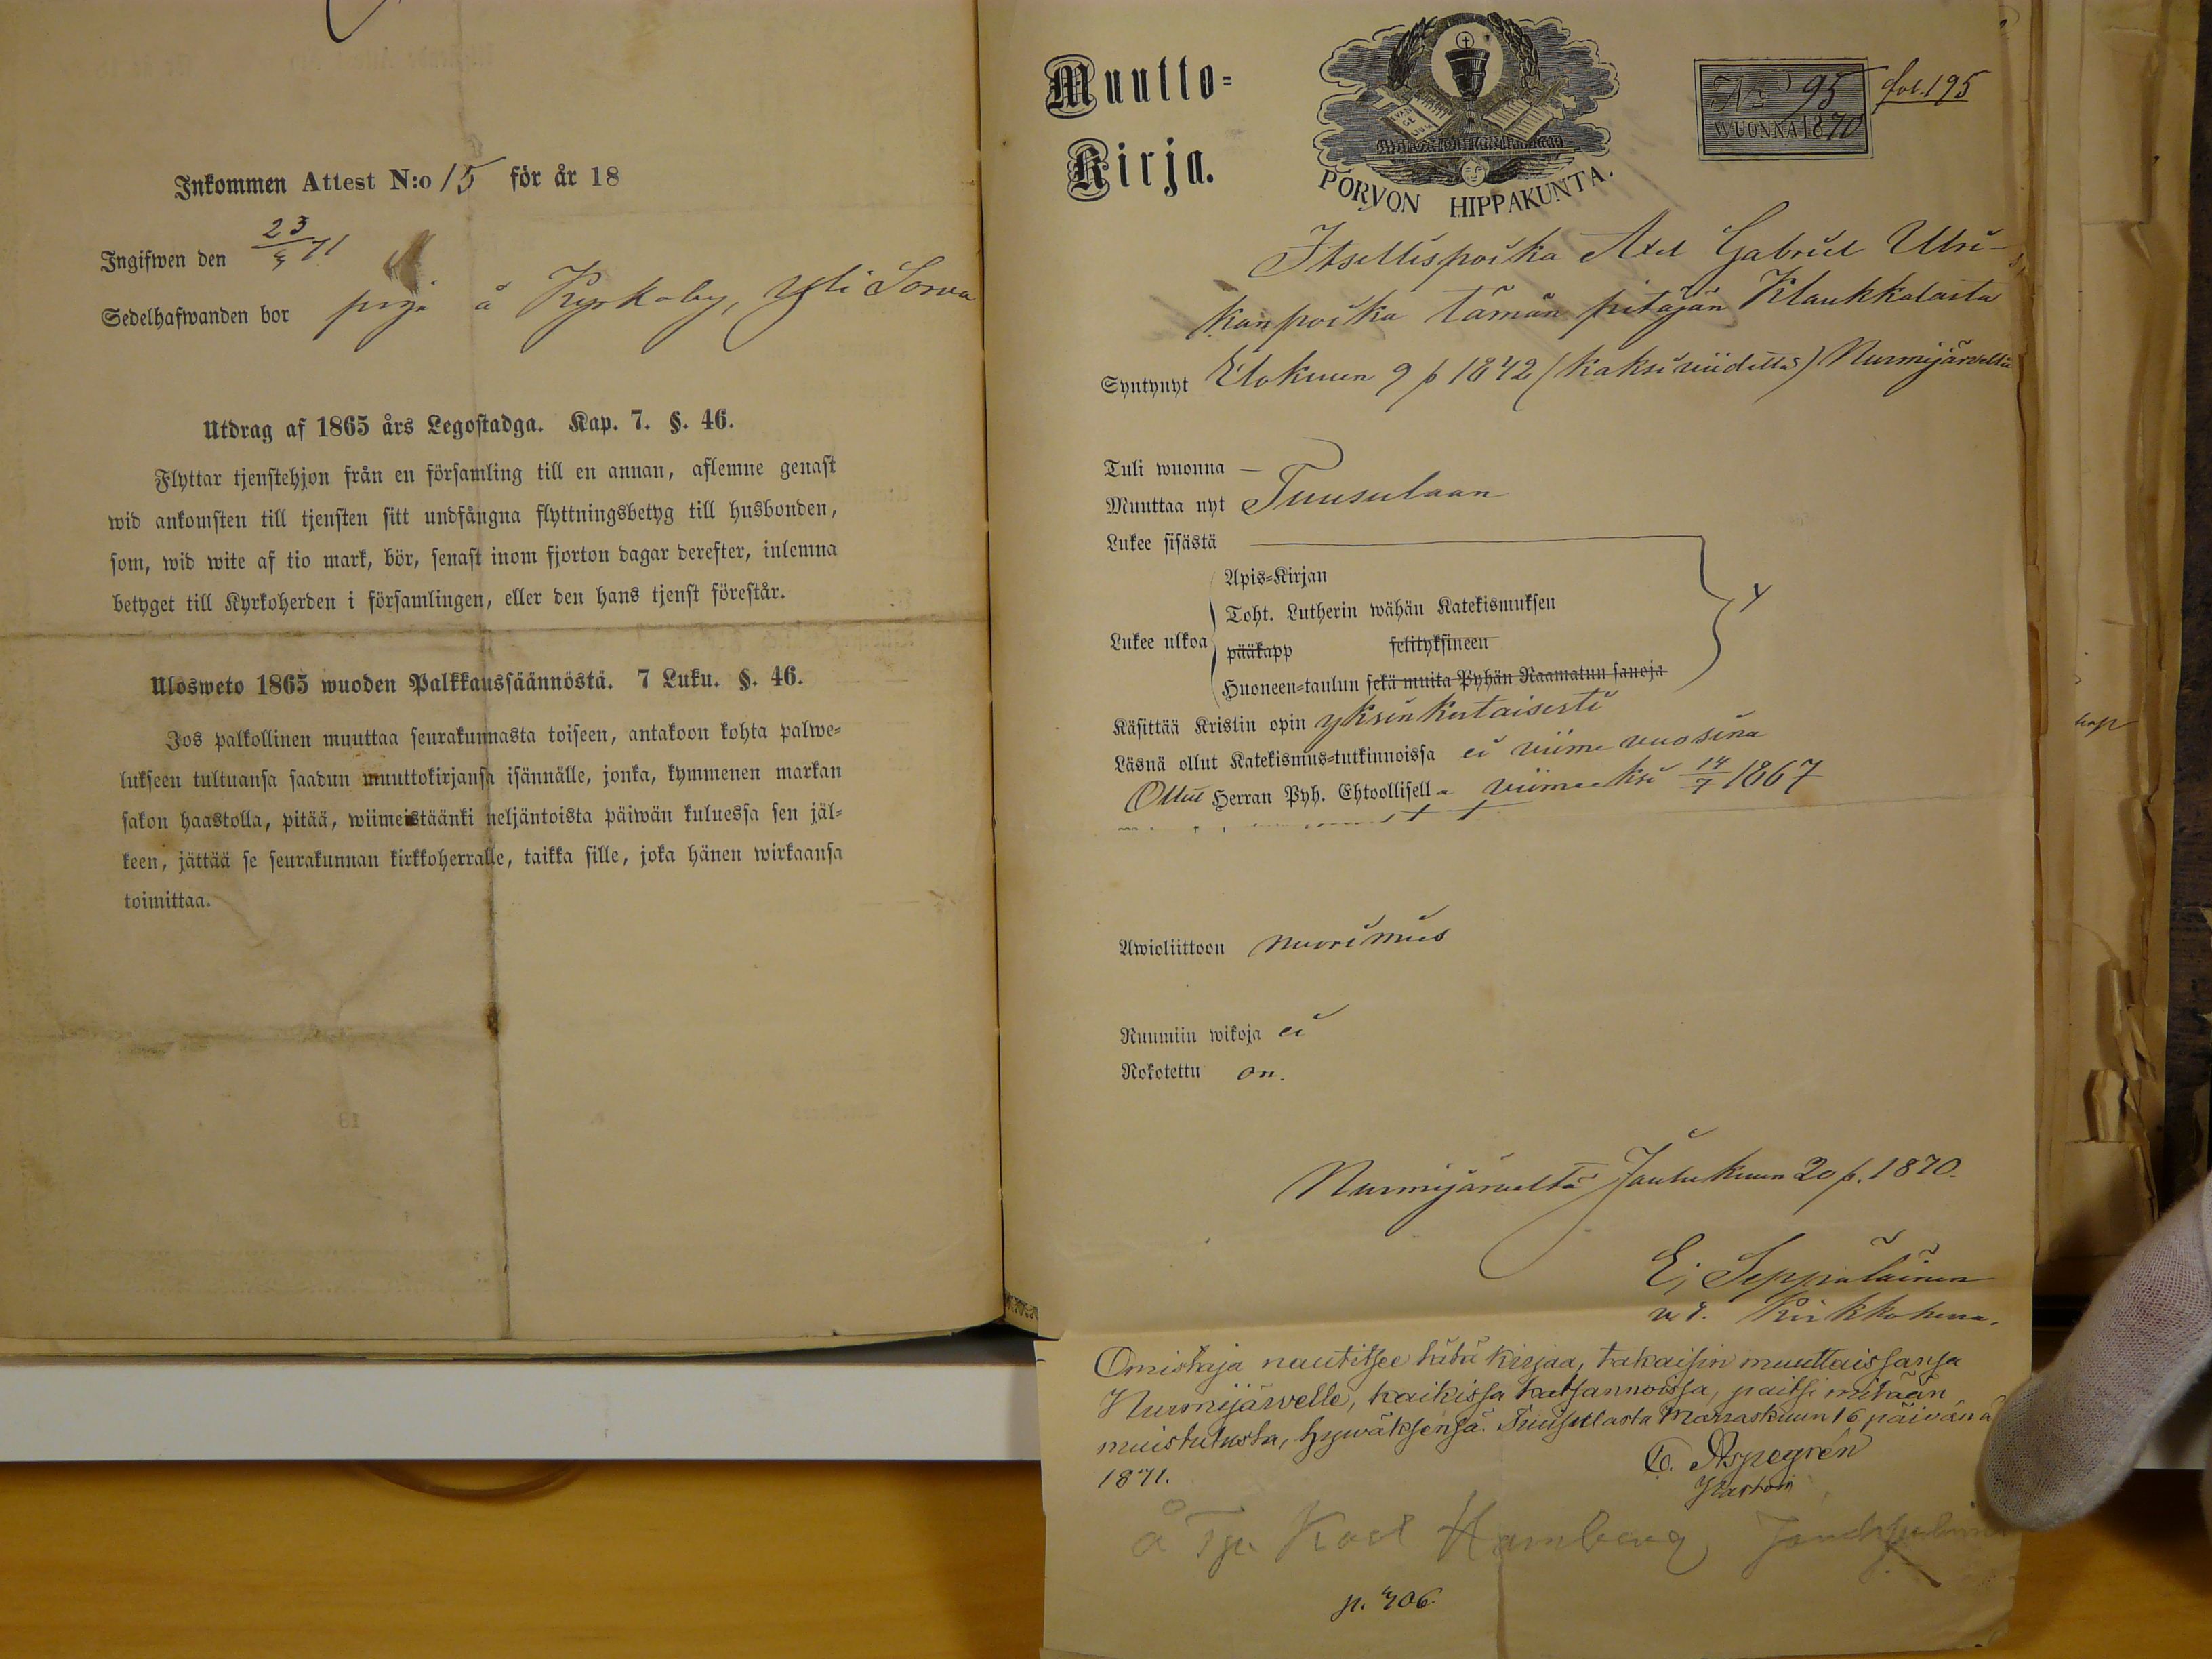 Inkommen Attest N:o 15 för år 18
Ingifwen den 23/9 71
Sedelhafwanden bor piga å Kyrkoby, Yli Sorva
Utdrag af 1865 års Legostadga. Kap. 7. §. 46.
Flyttar tjenstehjon från en församling till en annan, aflemne genast
wid ankomsten till tjensten sitt undfångna flyttningsbetyg till husbonden,
som, wid wite af tio mark, bör, senast inom fjorton dagar derefter, inlemna
betyget till Kyrkoherden i församlingen, eller den hans tjenst förestår.
Ulosweto 1865 wuoden Palkkaussäännöstä. 7 Luku. §. 46.
Jos palkollinen muuttaa seurakunnasta toiseen, antakoon kohta palwe-
lukseen tultuansa saadun muuttokirjansa isännälle, jonka, kymmenen markan
sakon haastolla, pitää, wiimeistäänki neljäntoista päiwän kuluessa sen jäl-
keen, jättää se seurakunnan kirkkoherralle, taikka sille, joka hänen wirkaansa
toimittaa.
Muutto-
Kirja.
PORVON HIPPAKUNTA.
No 95 fol. 195
WUONNA 1870
Itsellispoika Axel Gabriel Ulri-
kanpoika tämän pitäjän Klaukkalasta
Syntynyt Elokuun 9 p 1842 (kaksi viidettä) Nurmijärvellä
Tuli wuonna —
Muuttaa nyt Tuusulaan
Lukee sisästä
Apis-Kirjan
Toht. Lutherin wähän Katekismuksen
Lukee ulkoa
pääkapp selityksineen
Huoneen-taulun sekä muita Pyhän Raamatun sanoja
Käsittää Kristin opin yksinkertaisesti
Läsnä ollut Katekismus-tutkinnoissa ei viime vuosina
Ollut Herran Pyh. Ehtoollisella viimeksi 14/7 1867
Awioliittoon nuori mies
Ruumiin wikoja ei
Rokotettu on.
Nurmijärveltä Joulukuun 20 p. 1870.
E; Seppäläinen
v. t. Kirkkoherra.
Omistaja nautitsee tätä kirjaa, takaisin muuttaissansa
Nurmijärvelle, kaikissa katsannoissa, paitsi mitään
muistutusta, hyväksensä. Tuusulasta Marraskuun 16 päivänä
1871.
C. Aspegrén
å Tpr Karl Hamberg
p. 406.